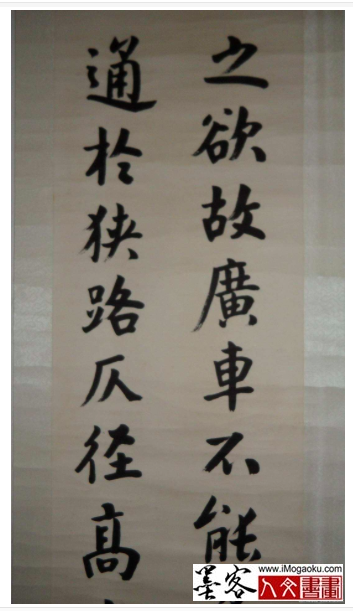 之欲故廣車不能
通於狭路仄径高
www.iMogaoku.com
墨客人文書畫